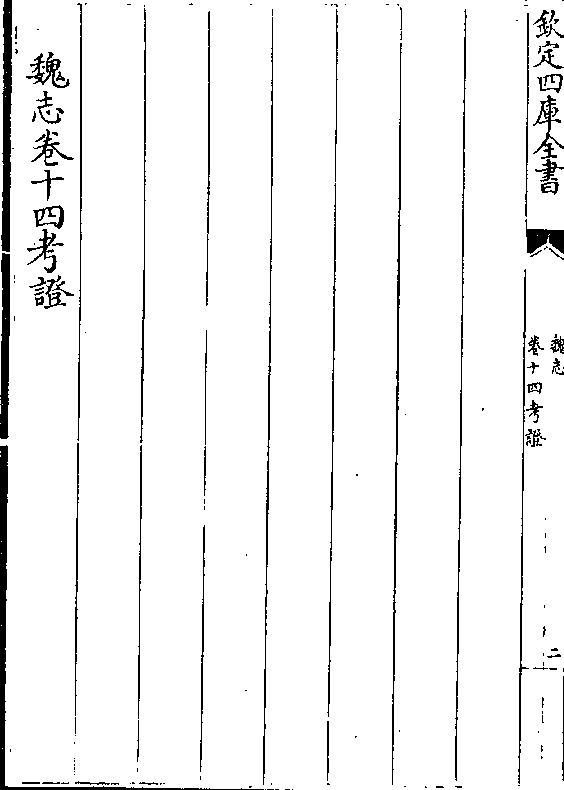 欽定四庫全書
魏志
卷十四考證
二
魏志卷十四考證